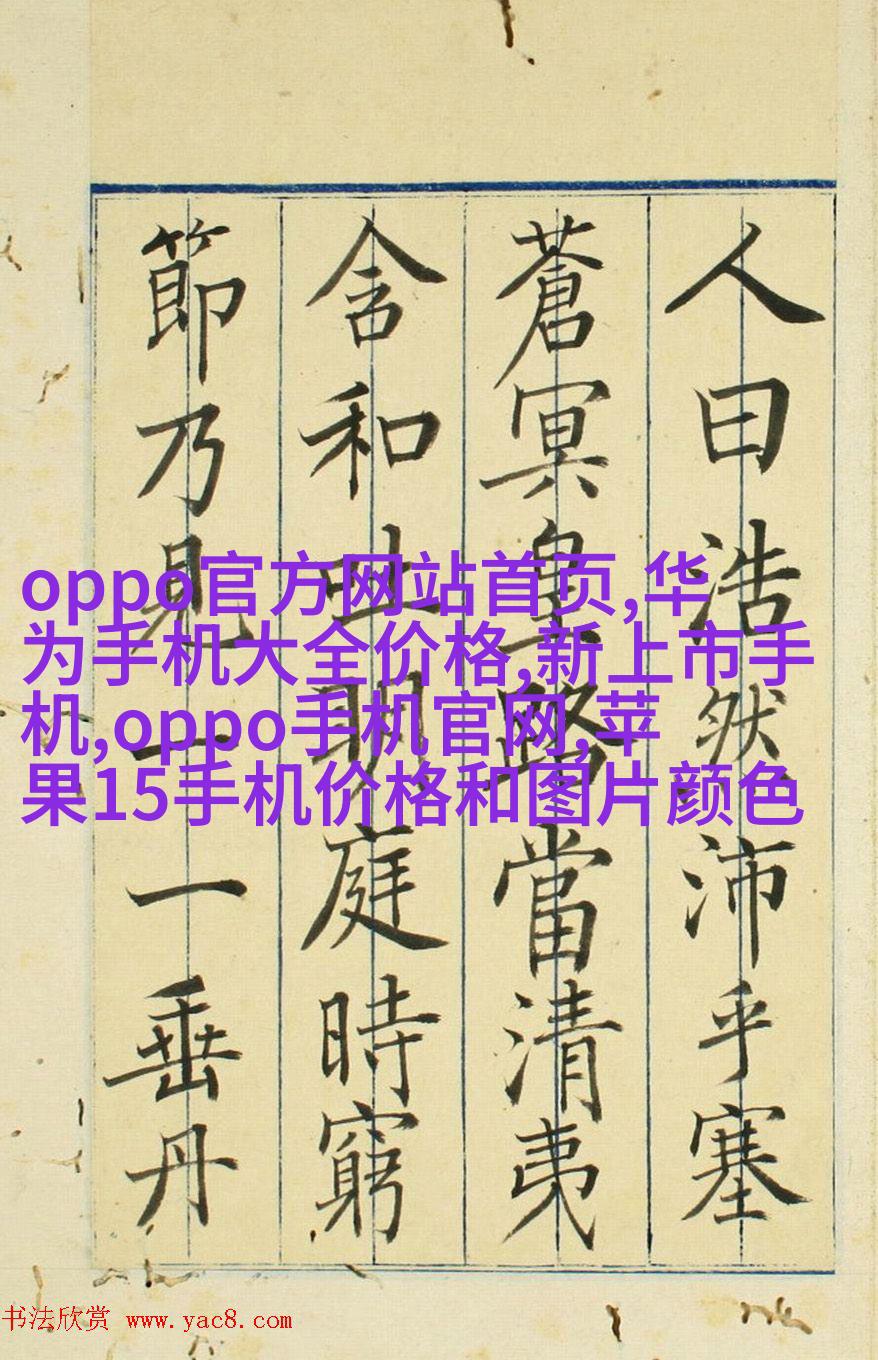 人曰浩然沛乎塞
蒼冥皇路當清夷
含和吐明庭時窮
節乃見一一垂丹
oppo官方网站首页,华
为手机大全价格,新上市手
机,oppo手机官网,苹
果15手机价格和图片颜色
书法欣赏 www.yac8.com